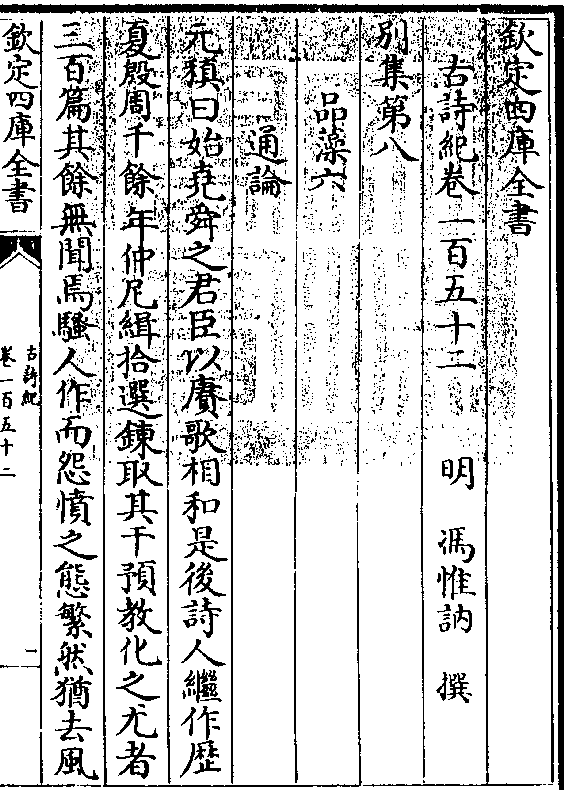 欽定四庫全書
古詩紀卷一百五十二　明　馮惟訥　撰
別集第八
品藻六
通論
元稹曰始堯舜之君臣以賡歌相和是後詩人繼作歴
夏殷周千餘年仲尼緝拾選鍊取其干預教化之尤者
三百篇其餘無聞焉騷人作而怨憤之態繁然猶去風
欽定四庫全書
古詩紀
卷一百五十二
一